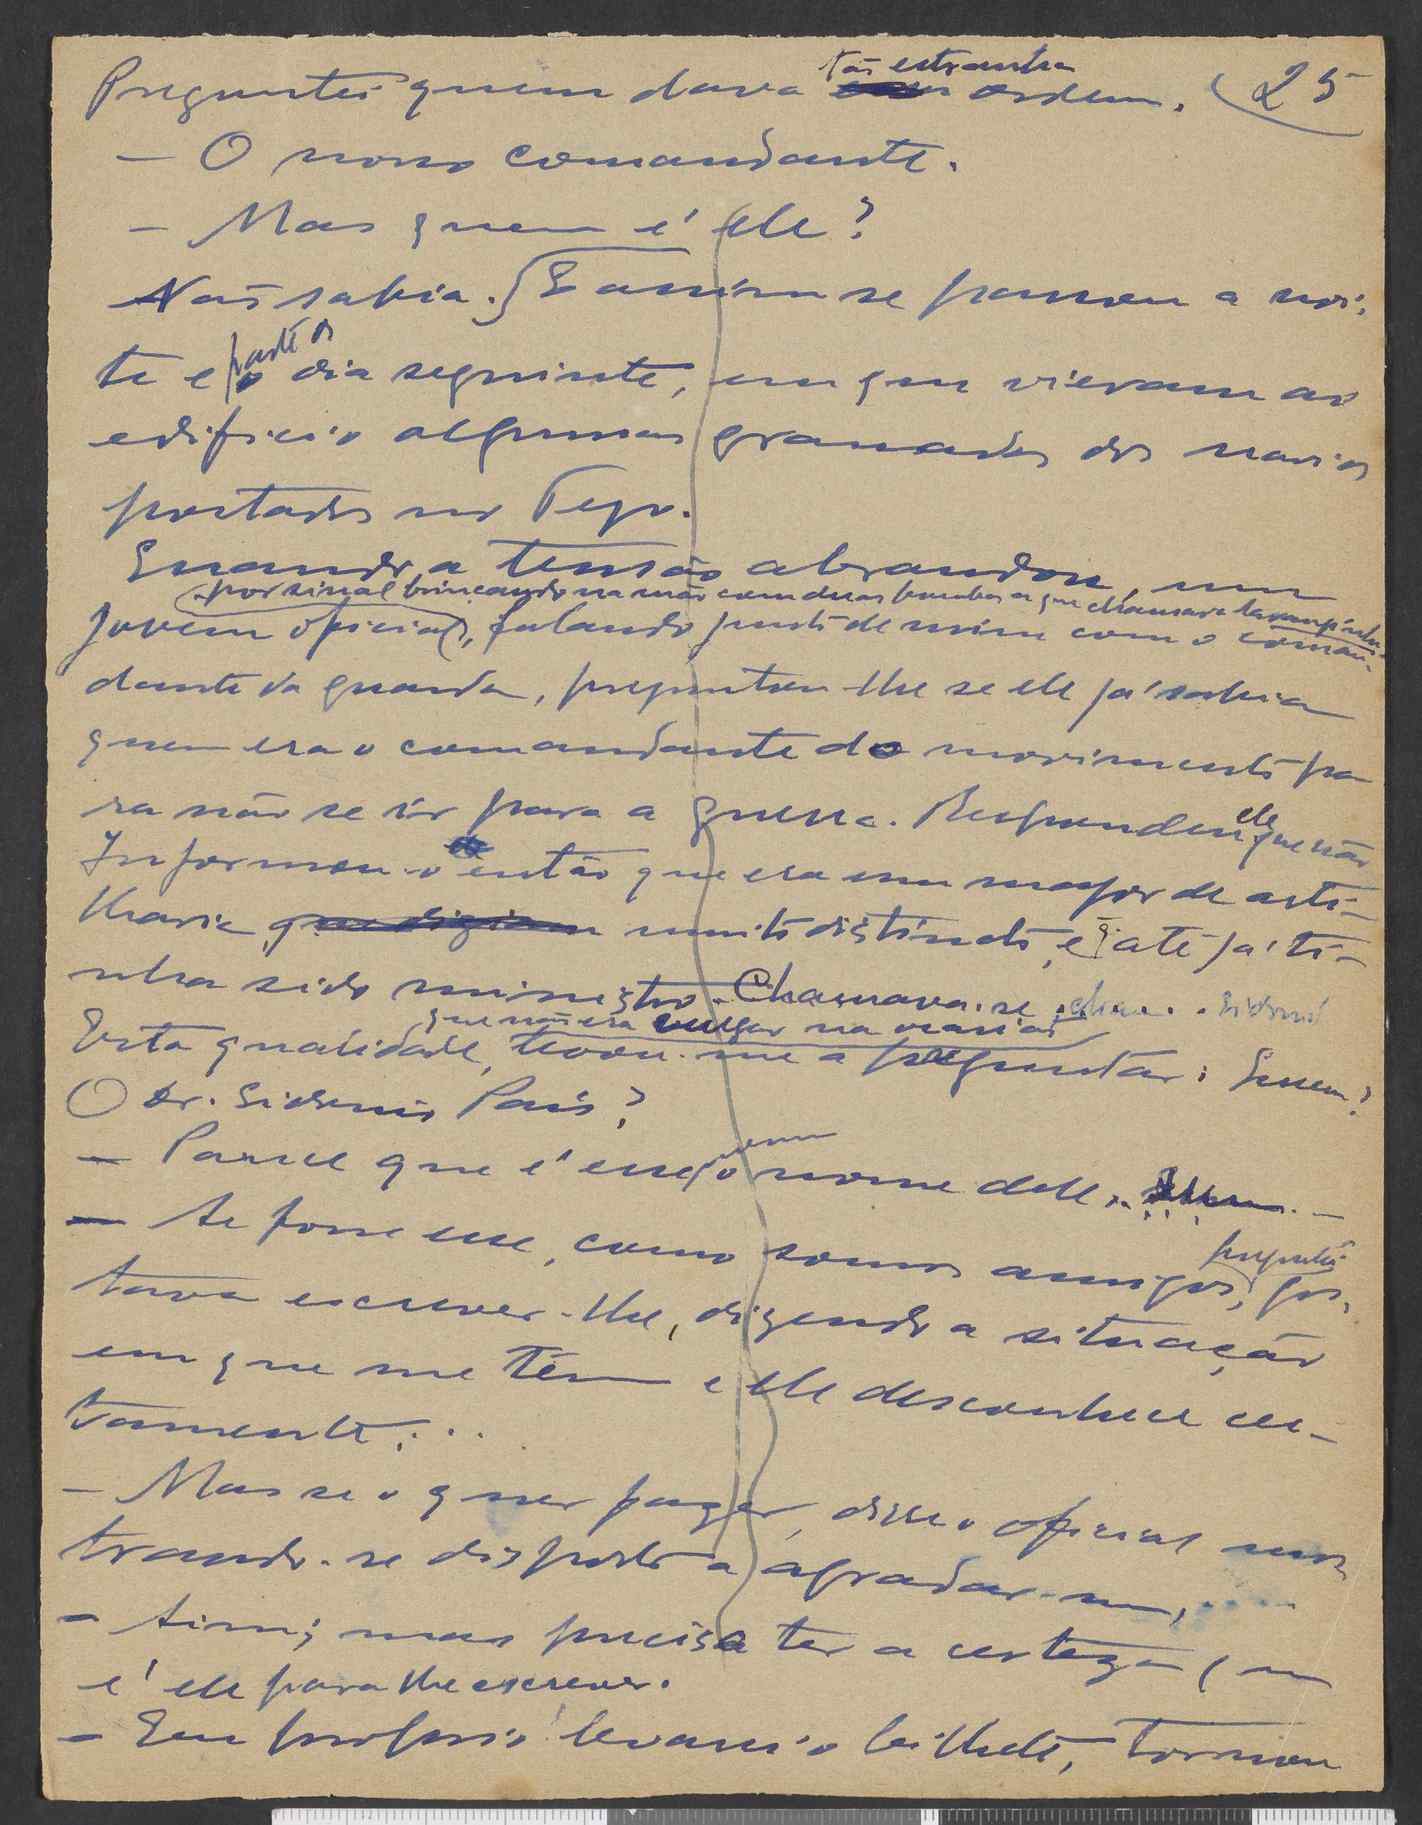 25
Preguntei quem dava tão estranha ordem.
— O nosso comandante.
— Mas quem é ele?
Não sabia. E assim se passou a noi-
te e parte do dia seguinte, em que vieram ao
edificio algumas granadas dos navios
postados no Tejo.
Quando a tensão abrandou, um
por sinal brincando na mão com duas bombas a que chamava
jovem oficial, falando junto de mim com o coman-
dante da guarda, preguntou-lhe se ele já sabia
quem era o comandante do movimento pa
ra não se ir para a guerra. Respondeu ele que não
Informou-o então que era um major de arti-
lharia que diziam muito distinto, e até já ti-
nha sido ministro. Chamava-se Sidonio
que não era vulgar na ocasião
Esta qualidade, levou-me a preguntar: Quem?
O dr. Sidonio Pais?
— Parece que é esse o nome dele...
— Se fosse esse, como somos amigos, gos-
tava escrever-lhe, dizendo a situação
em que me têm e ele desconhece cer-
tamente...
— Mas se o quer fazer, disse o oficial mos
trando-se disposto a agradar-me,
— Sim; mas preciso ter a certeza que
é ele para lhe escrever.
— Eu proprio levarei o bilhete, tornou